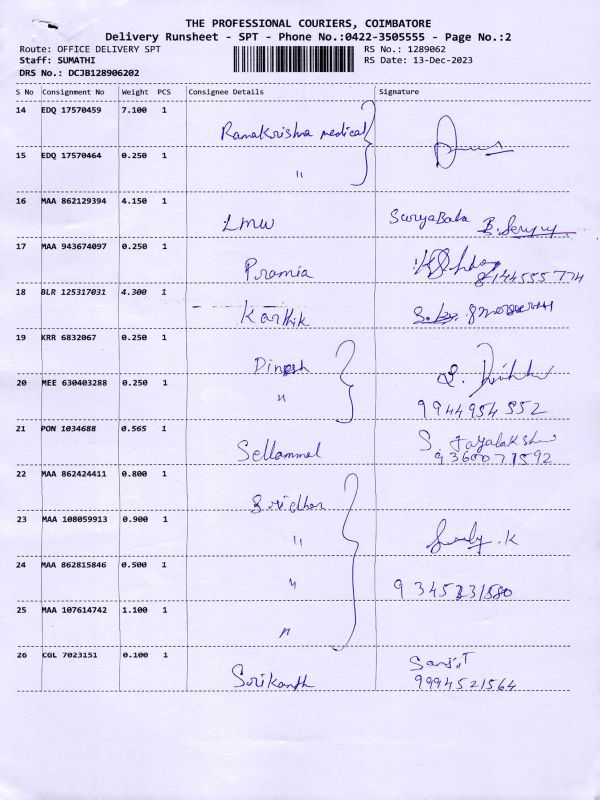 THE PROFESSIONAL COURIERS, COIMBATORE
Delivery Runsheet - SPT - Phone No.:0422-3505555 - Page No.:2
Route: OFFICE DELIVERY SPT RS No.: 1289062
Staff: SUMATHI RS Date: 13-Dec-2023
DRS No.: DCJB128906202
S No Consignment No Weight PCS Consignee Details Signature
14 EDQ 17570459 7.100 1
Ramakrishna medical
15 EDQ 17570464 0.250 1
"
16 MAA 862129394 4.150 1
LMW SuryaBala
17 MAA 943674097 0.250 1
Pramia
18 BLR 125317031 4.300 1
Karthik
19 KRR 6832067 0.250 1
Dinesh
20 MEE 630403288 0.250 1
" 9944954552
21 PON 1034688 0.565 1
Sellammal 9360071592
22 MAA 862424411 0.800 1
Sridhar
23 MAA 108059913 0.900 1
"
24 MAA 862815846 0.500 1
"
25 MAA 107614742 1.100 1
"
26 CGL 7023151 0.100 1
Srikanth 9994521564